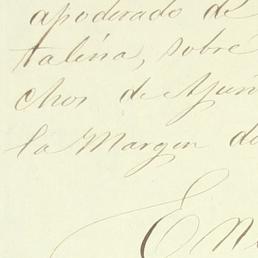 apoderado de
talina, sobre
chos de Ayun
la Margen de
En